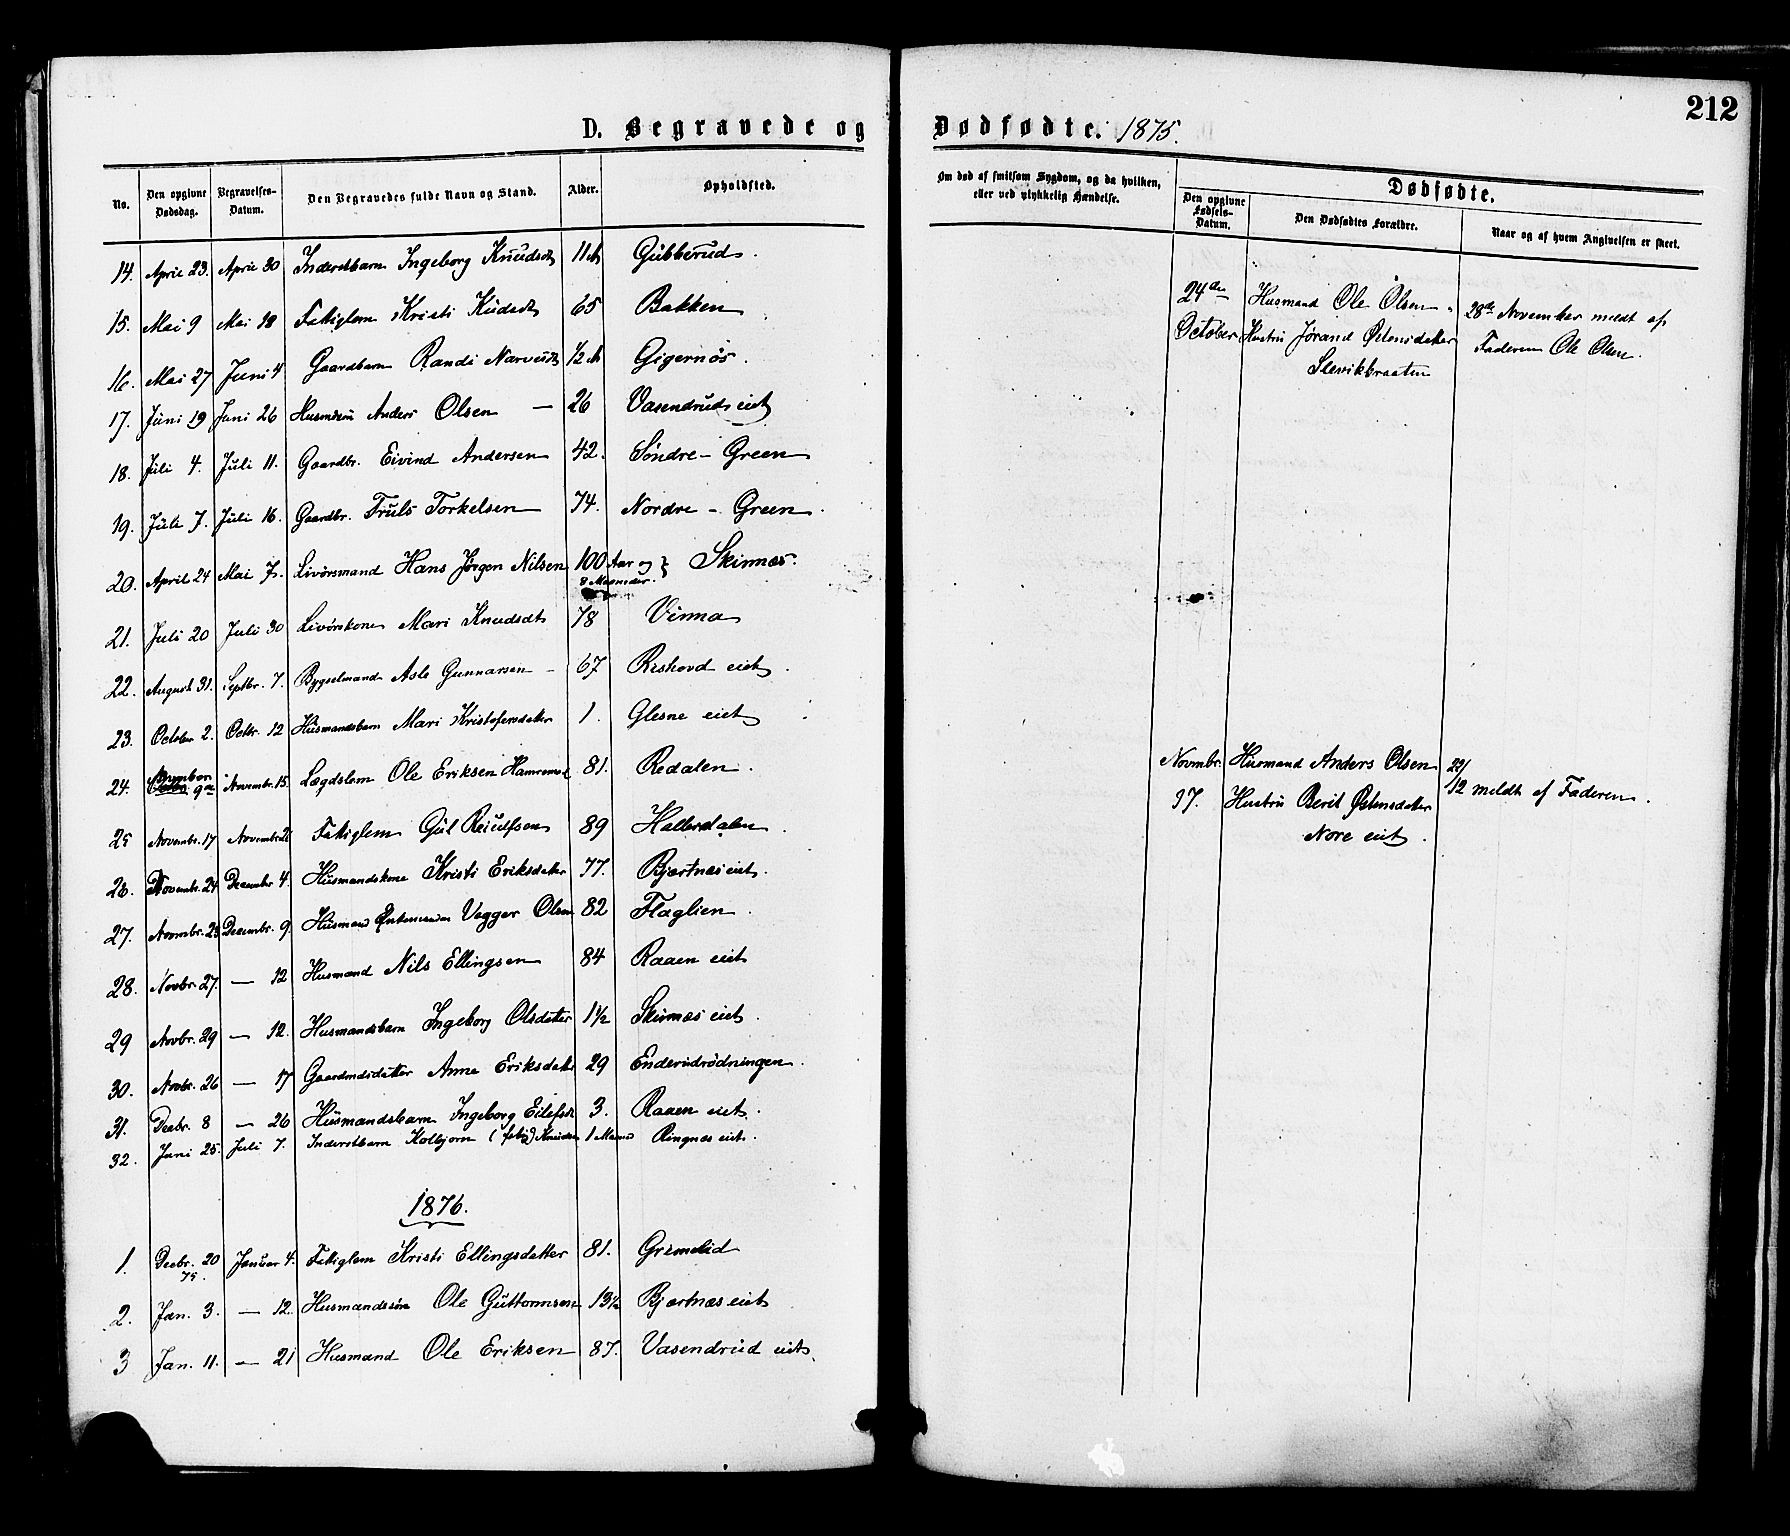 212
D. Begravede og Dødfødte. 1875.
No. Den opgivne Dødsdag. Begravelses-Datum. Den Begravedes fulde Navn og Stand. Alder. Opholdsted.
Om død af smitsom Sygdom, og da hvilken, eller ved ulykkelig Hændelse.
Dødfødte.
Den opgivne Fødsels-Datum. Den Dødfødtes Forældre. Naar og af hvem Angivelsen er skeet.
14. April 23. April 30 Inderstbarn Ingeborg Knudsdt 11 M Gubberud.
15. Mai 9 Mai 18 Fattiglem Kristi 65 Bakken
16. Mai 27 Juni 4 Gaardbarn Randi 1/2 M Gigernös.
17. Juni 19 Juni 26 Anders Olsen — 26 Vasendruds eiet
18. Juli 4. Juli 11. Gaardbr. Eivind Andersen 42. Søndre - Green
19. Juli 7. Juli 16. Gaardbr. Truls Torkelsen 74. Nordre - Green.
20. April 24 Mai 7. Livørsmand Hans Jørgen Nilsen 100 Aar og 8 Maaneder. } Skinnæs.
21. Juli 20 Juli 30 Livørskone Mari Knudsdt 78 Vinna
22. August 31. Septbr. 7. Bygselmand Asle Gunnarsen - 67 Rishovd eiet.
23. October 2. Octbr. 12 Husmandsbarn Mari Kristofersdatter 1. Glesne eiet
24. November 9de Novembr. 15. Lægdslem Ole Eriksen 81. Redalen.
25 Novembr. 17 Fattiglem 89 Hallerdalen
26. Novembr. 24 December 4. Husmandskone Kristi Eriksdatter 77. Bjertnæs eiet.
27. Novmbr. 23 Decembr. 9. Husmand Vegger Olsen 82 Flaglien.
28. Novbr. 27. — 12 Husmand Nils Ellingsen 84 Raaen eiet
29 Novbr. 29 — 12. Husmandsbarn Ingeborg Olsdatter 1½ Skinnæs eiet.
30. Novbr. 26 — 17 Gaardmdsdatter Anne Eriksdatt 29 Enderudrødningen.
31. Decbr. 8 — 26 Husmandsbarn Ingeborg Eilefsdt 3. Raaen eiet.
32. Juni 25. Juli 7. Inderstbarn Kolbjørn 1 Ringnæs eiet.
1876.
1. Decbr. 20 75. Januar 4. Fattiglem Kristi Ellingsdatter 81. Grimelid
2. Jan. 3. — 12. Husmandssøn Ole Guttormsen 13½ Bjertnæs eiet
3 Jan. 11. — 21 Husmand Ole Eriksen 87. Vasendrud eiet.
24de October Husmand Ole Olsen Hustru Jørand Østensdatter Slevikbraaten
28de November meldt af Faderen Ole Olsen.
Novmbr. Husmand Anders Olsen Hustru Berit Østensdatter Nore eiet.
22/12 meldt af Faderen.